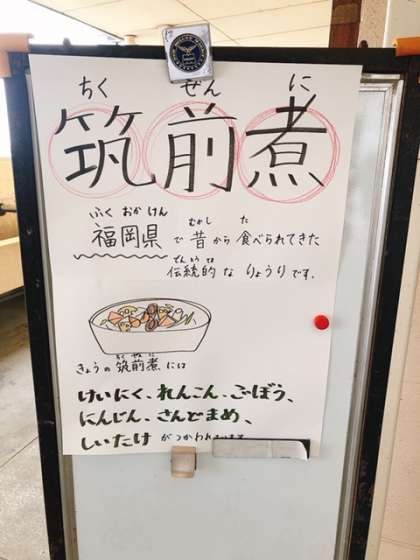 ちく ぜん に
筑前煮
ふくおかけん むかし た
福岡県で昔から食べられてきた
でんとうてき
伝統的なりょうりです。
ちくぜんに
きょうの筑前煮には
けいにく、れんこん、ごぼう、
にんじん、さんどまめ、
しいたけがつかわれ